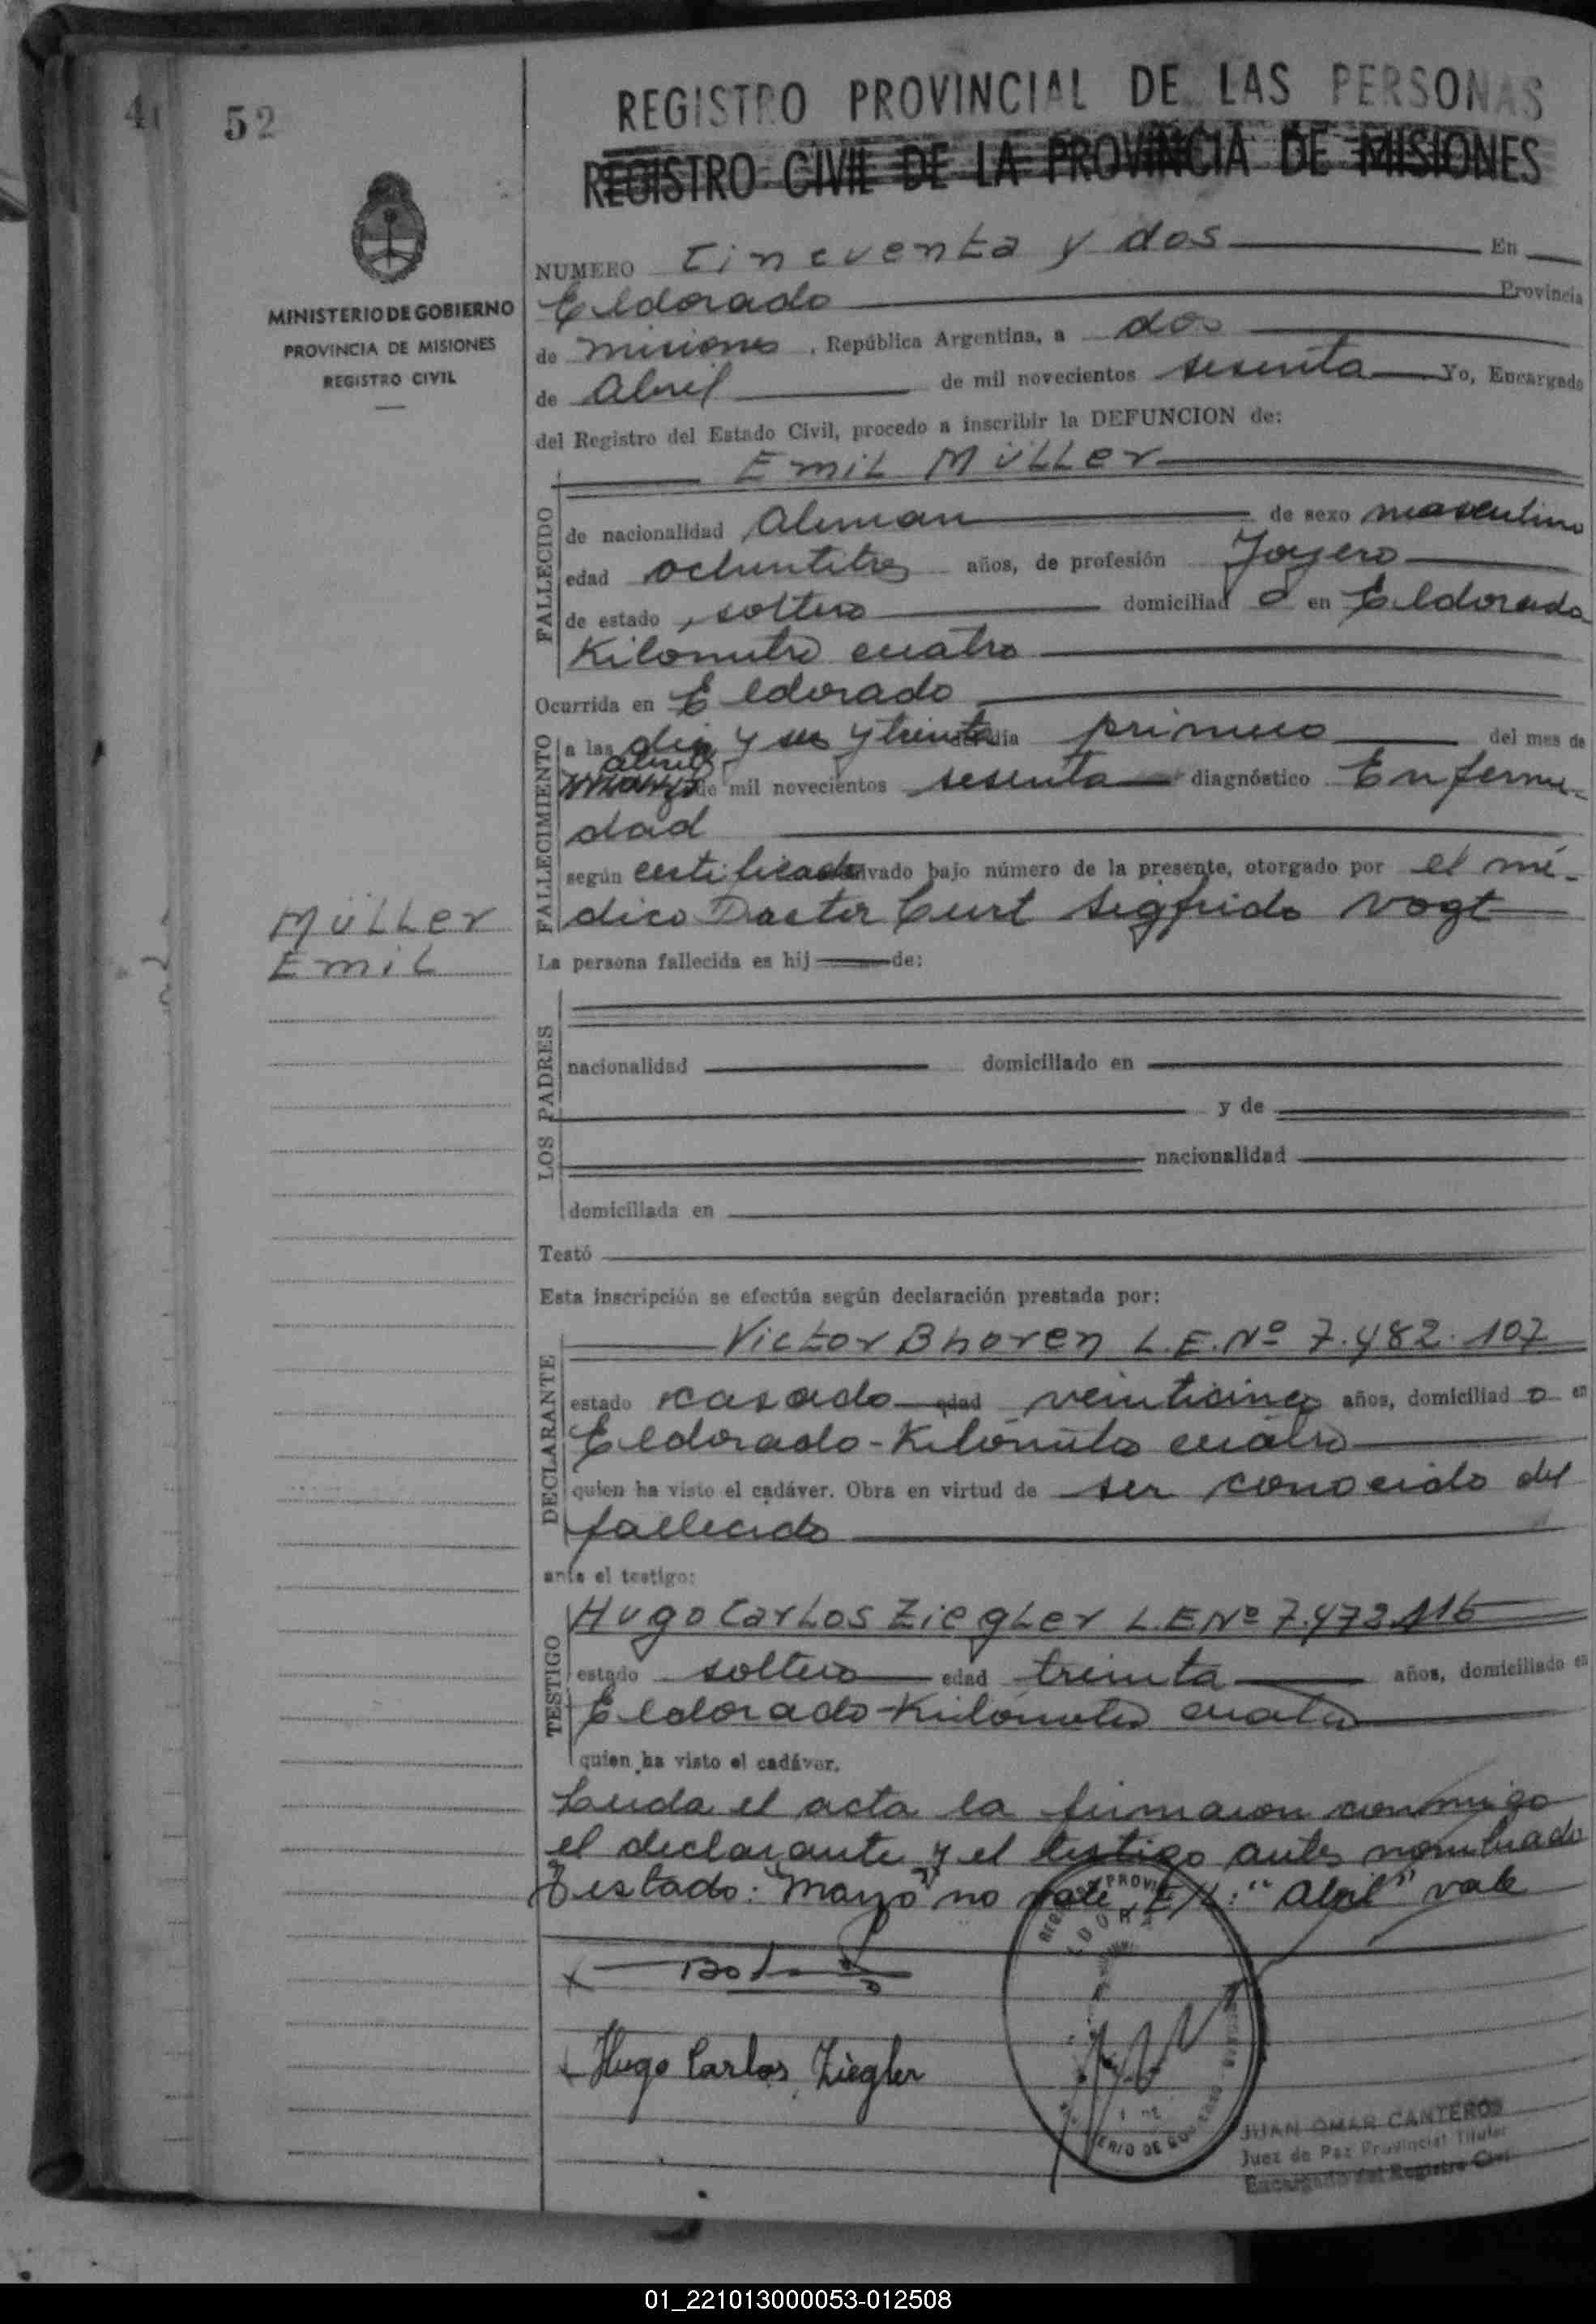 41 52
REGISTRO PROVINCIAL DE LAS PERSONAS
REGISTRO CIVIL DE LA PROVINCIA DE MISIONES
MINISTERIO DE GOBIERNO
PROVINCIA DE MISIONES
REGISTRO CIVIL
NUMERO Cincuenta y dos En
Eldorado Provincia
de Misiones, República Argentina, a dos
de Abril de mil novecientos sesenta Yo, Encargado
del Registro del Estado Civil, procedo a inscribir la DEFUNCION de:
Emil Müller
FALLECIDO
de nacionalidad Aleman de sexo masculino
edad ochentitres años, de profesión Joyero
de estado soltero domiciliad o en Eldorado
Kilometro cuatro
Ocurrida en Eldorado
FALLECIMIENTO
a las diez y seis y treinta del día primero del mes de
abril
de mil novecientos sesenta diagnóstico Enferme-
dad
según certificado archivado bajo número de la presente, otorgado por el mé-
dico Doctor Curt Sigfrido Vogt
Müller
Emil
La persona fallecida es hij de:
LOS PADRES
nacionalidad domiciliado en
y de
nacionalidad
domiciliada en
Testó
Esta inscripción se efectúa según declaración prestada por:
DECLARANTE
Victor Bhoren L.E.Nº 7.482.107
estado casado edad veinticinco años, domiciliad o en
Eldorado-Kilómetro cuatro
quien ha visto el cadáver. Obra en virtud de ser conocido del
fallecido
ante el testigo:
TESTIGO
Hugo Carlos Ziegler L.E Nº 7.473.116
estado soltero edad treinta años, domiciliado en
Eldorado-Kilómetro cuatro
quien ha visto el cadáver.
Leida el acta la firmaron conmigo
el declarante y el testigo antes nombrado
Testado: "Mayo" no vale, E/L: "Abril" vale
Hugo Carlos Ziegler
JUAN OMAR CANTEROS
Juez de Paz Provincial Titular
Encargado del Registro Civil
01_221013000053-012508